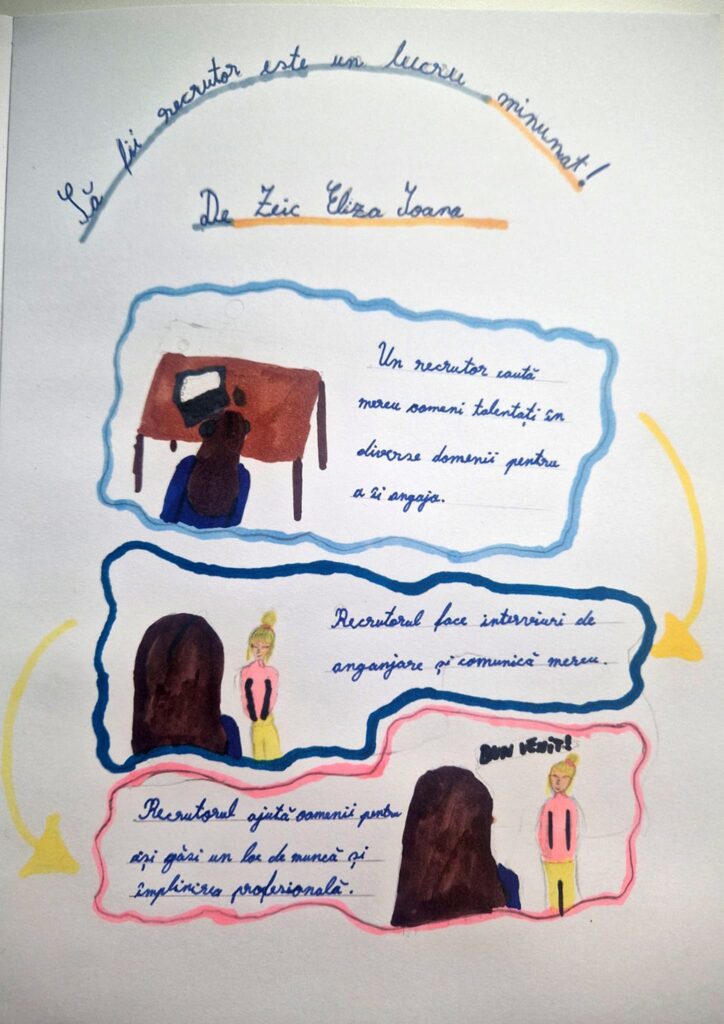 Să fii recrutor este un lucru minunat!
De Zeic Eliza Ioana
Un recrutor caută
mereu oameni talentați în
diverse domenii pentru
a îi angaja.
Recrutorul face interviuri de
anganjare și comunică mereu.
BUN VENIT!
Recrutorul ajută oamenii pentru
ași găsi un loc de muncă și
împlinirea profesională.